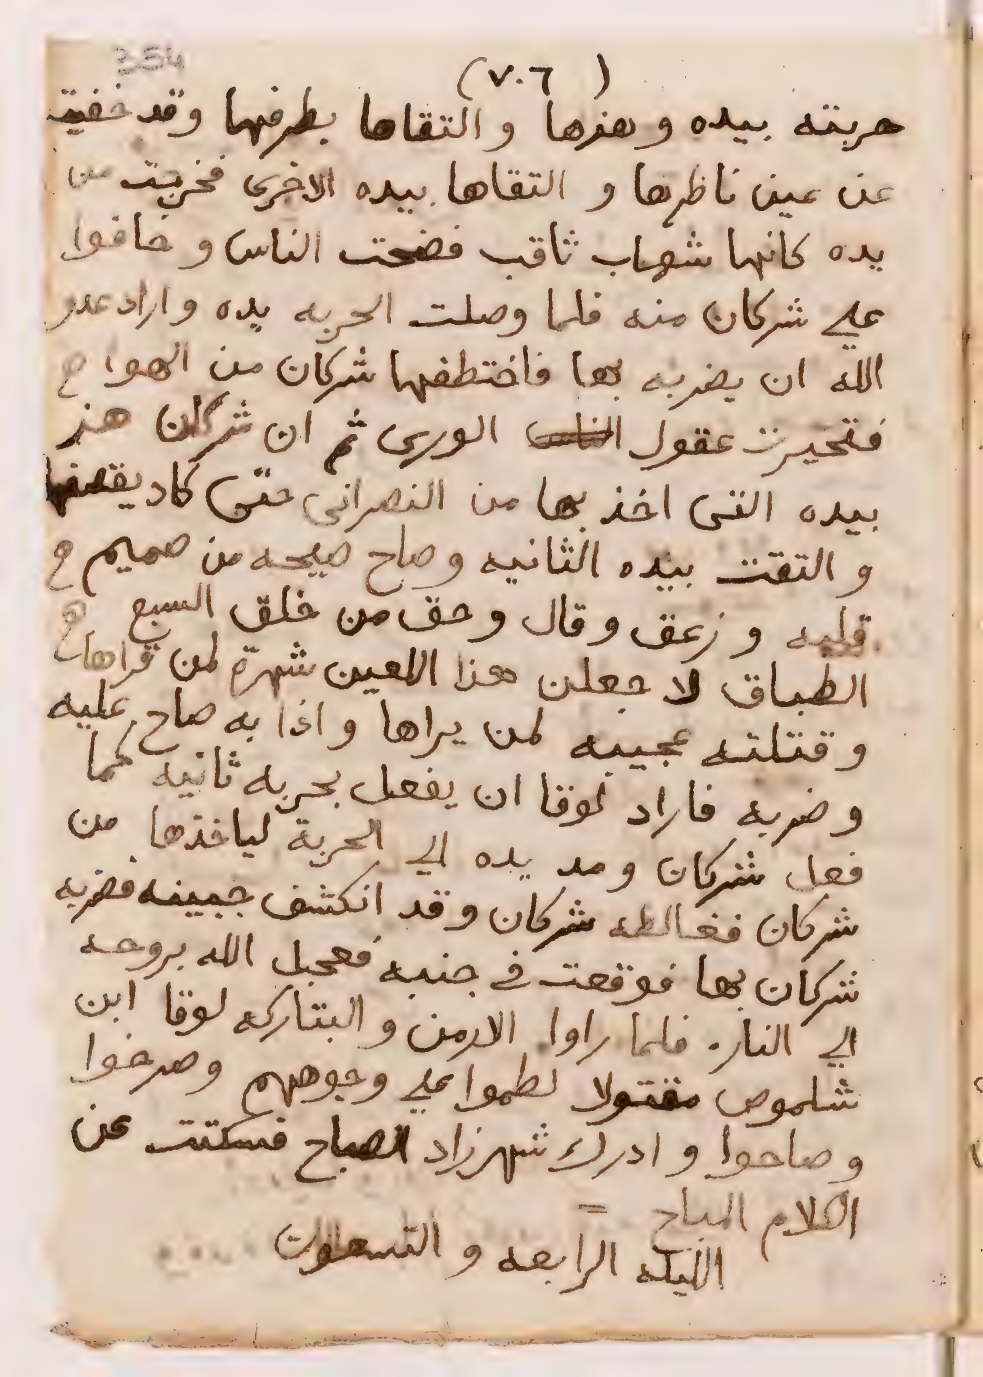 354
(٧٠٦)
حربته بيده وهزها والتقاها بطرفها وقد خفيت
عن عين ناظرها و التقاها بيده الاخرى فخرجت من
يده كانها شهاب ثاقب فضجت الناس وخافوا
علي شركان منه فلما وصلت الحربه يده واراد عدو
الله ان يضربه بها فاختطفها شركان من الهوا
فتحيرت عقول الورى ثم ان شركان هز
بيده التى اخذ بها من النصرانى حتى كاد يقصفها
والتقت بيده الثانيه وصاح صيحه من صميم
قلبه وزعق وقال وحق من خلق السبع
الطباق لاجعلن هذا اللعين شهرة لمن قراها
وقتلته عجيبه لمن يراها واذا به صاح عليه
وضربه فاراد لوقا ان يفعل بحربه ثانيه كما
فعل شركان ومد يده الي الحربة لياخذها من
شركان فغالطه شركان وقد انكشف جبينه فضربه
شركان بها فوقعت في جنبه فعجل الله بروحه
الي النار. فلما راوا الارمن والبتاركه لوقا ابن
شلموص مقتولا لطموا علي وجوههم وصرخوا
وصاحوا و ادرك شهرزاد الصباح فسكتت عن
الكلام المباح =
الليله الرابعه و التسعون